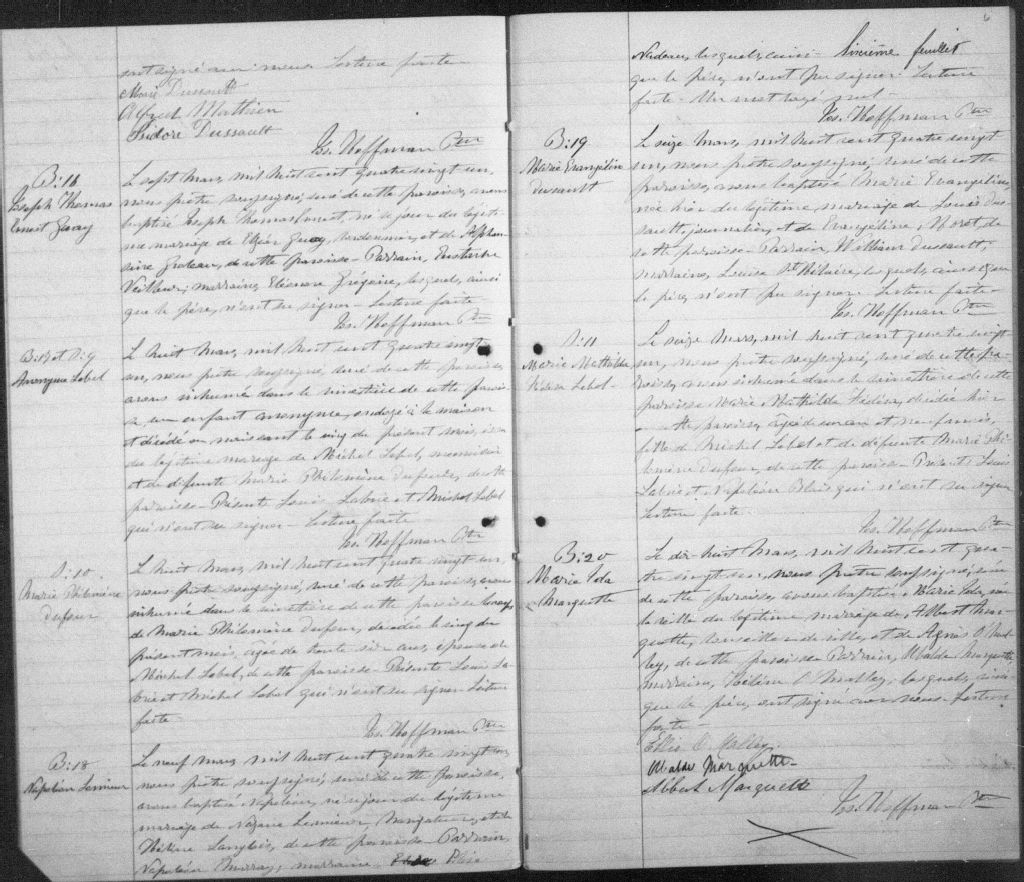 ont signé avec nous Lecture faite
Marie Dussault
Alfred Mathieu
Isidore Dussault
Jos. Hoffman Ptre
B:16
Joseph Thomas
Ernest Guay
Le sept Mars, mil huit cent quatre vingt un,
nous prêtre soussigné, curé de cette paroisse, avons
baptisé Joseph Thomas Ernest, né ce jour du légiti-
me mariage de Elzéar Guay, cordonnier, et de Alphon
sine Groleau, de cette paroisse. Parrain, Eustache
Veilleux; marraine, Eléonore Grégoire, lesquels, ainsi
que le père, n'ont su signer. Lecture faite
Jos. Hoffman Ptre
B:17 et S:9
Anonyme Lebel
Le huit Mars, mil huit cent quatre vingt
un, nous prêtre soussigné, curé de cette paroisse,
avons inhumé dans le cimetière de cette parois-
se, un enfant anonyme, ondoyé à la maison
et décédé en naissant le cinq du présent mois, issu
du légitime mariage de Michel Lebel, menuisier
et de défunte Marie Philomène Dufour, de cette
paroisse. Présents Louis Labrie et Michel Lebel
qui n'ont su signer. Lecture faite
Jos. Hoffman Ptre
S:10
Marie Philomène
Dufour
Le huit Mars, mil huit cent quatre vingt un,
nous prêtre soussigné, curé de cette paroisse, avons
inhumé dans le cimetière de cette paroisse le corps
de Marie Philomène Dufour, décédée le cinq du
présent mois, âgée de trente six ans, épouse de
Michel Lebel, de cette paroisse. Présents Louis La-
brie et Michel Lebel qui n'ont su signer Lecture
faite
Jos. Hoffman Ptre
B:18
Napoléon Lemieux
Le neuf Mars, mil huit cent quatre vingt un,
nous prêtre soussigné, curé de cette paroisse,
avons baptisé Napoléon, né ce jour du légitime
mariage de Nazaire Lemieux, Navigateur, et de
Hélène Langlois, de cette paroisse. Parrain,
Napoléon Murray, marraine
6
Nadeau, lesquels, ainsi Sixième feuillet
que le père, n'ont pu signer. Lecture
faite. Un mot rayé nul
Jos. Hoffman Ptre
B:19
Marie Evangéline
Dussault
Le seize Mars, mil huit cent quatre vingt
un, nous prêtre soussigné, curé de cette
paroisse, avons baptisé Marie Evangéline,
née hier du légitime mariage de Louis Dus-
sault, journalier, et de Evangéline Noret, de
cette paroisse. Parrain, William Dussault,
marraine, Louise St Hilaire, lesquels, ainsi que
le père, n'ont pu signer. Lecture faite
Jos. Hoffman Ptre
S:11
Marie Mathilda
Lebel
Le seize Mars, mil huit cent quatre vingt
un, nous prêtre soussigné, curé de cette pa-
roisse, avons inhumé dans le cimetière de cette
paroisse Marie Mathilda décédée hier
paroisse, âgée de un an et
fille de Michel Lebel et de défunte Marie Phi-
lomène Dufour, de cette paroisse. Présents Louis
Labrie et Napoléon Blais qui n'ont su signer
Lecture faite
Jos. Hoffman Ptre
B:20
Marie Ida
Marquette
Le dix huit Mars, mil huit cent qua-
tre vingt un, nous prêtre soussigné, curé
de cette paroisse, avons baptisé Marie Ida, née
la veille du légitime mariage de Albert Mar-
quette, de cette ville, et de Agnès O'Mal-
ley, de cette paroisse Parrain, Ubalde Marquette
marraine, Hélène O'Malley, lesquels, ainsi
que le père, ont signé avec nous. Lecture
faite
Ellie O. Malley
Ubalde Marquette
Albert Marquette
Jos. Hoffman Ptre